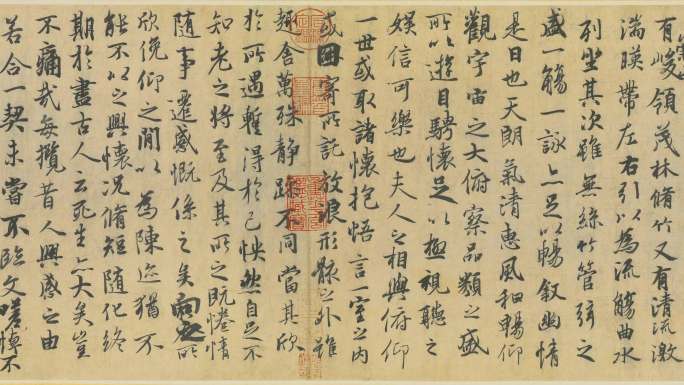 有峻領茂林脩竹又有清流激
湍暎帶左右引以為流觴曲水
列坐其次雖無絲竹管弦之
盛一觴一詠亦足以暢敘幽情
是日也天朗氣清惠風和暢仰
觀宇宙之大俯察品類之盛
所以遊目騁懷足以極視聽之
娛信可樂也夫人之相與俯仰
一世或取諸懷抱悟言一室之內
或因寄所託放浪形骸之外雖
趣舍萬殊靜躁不同當其欣
於所遇蹔得於己怏然自足不
知老之將至及其所之既惓情
隨事遷感慨係之矣向之所
欣俛仰之閒以為陳迹猶不
能不以之興懷況脩短隨化終
期於盡古人云死生亦大矣豈
不痛哉每攬昔人興感之由
若合一契未嘗不臨文嗟悼不